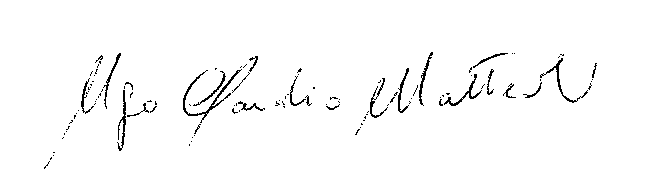 Ugo Claudio Matteoli